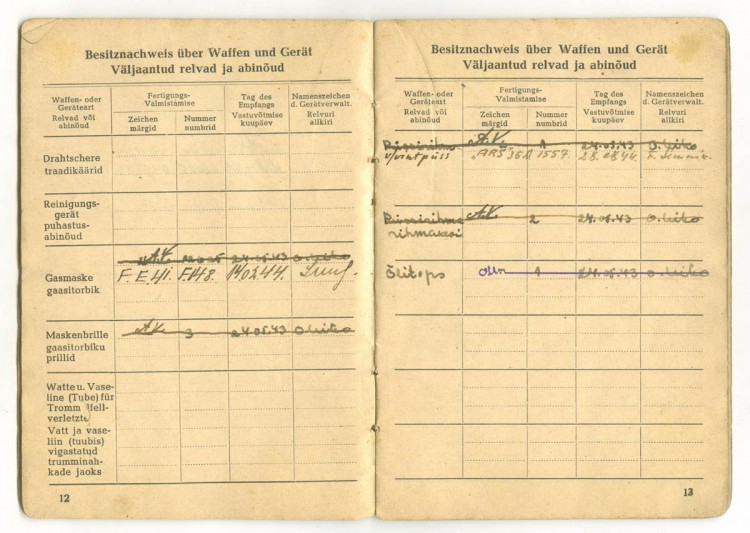 Besitznachweis über Waffen und Gerät
Väljaantud relvad ja abinõud
Waffen- oder
Geräteart
Relvad või
abinõud
Fertigungs-
Valmistamise
Zeichen
märgid
Nummer
numbrid
Tag des
Empfangs
Vastuvõtmise
kuupäev
Namenszeichen
d. Gerätverwalt.
Relvuri
allkiri
Drahtschere
traadikäärid
Reinigungs-
gerät
puhastus-
abinõud
24.05.43
Gasmaske
gaasitorbik
F.E.41. F.148. 14.02.44.
Maskenbrille
gaasitorbiku
prillid
3 24.05.43
Watte u. Vase-
line (Tube) für
Trommelfell-
verletzte
Vatt ja vase-
liin (tuubis)
vigastatud
trumminah-
kade jaoks
12
Besitznachweis über Waffen und Gerät
Väljaantud relvad ja abinõud
Waffen- oder
Geräteart
Relvad või
abinõud
Fertigungs-
Valmistamise
Zeichen
märgid
Nummer
numbrid
Tag des
Empfangs
Vastuvõtmise
kuupäev
Namenszeichen
d. Gerätverwalt.
Relvuri
allkiri
1 24.05.43
1557.
2 24.05.43
Õlitops 1
13